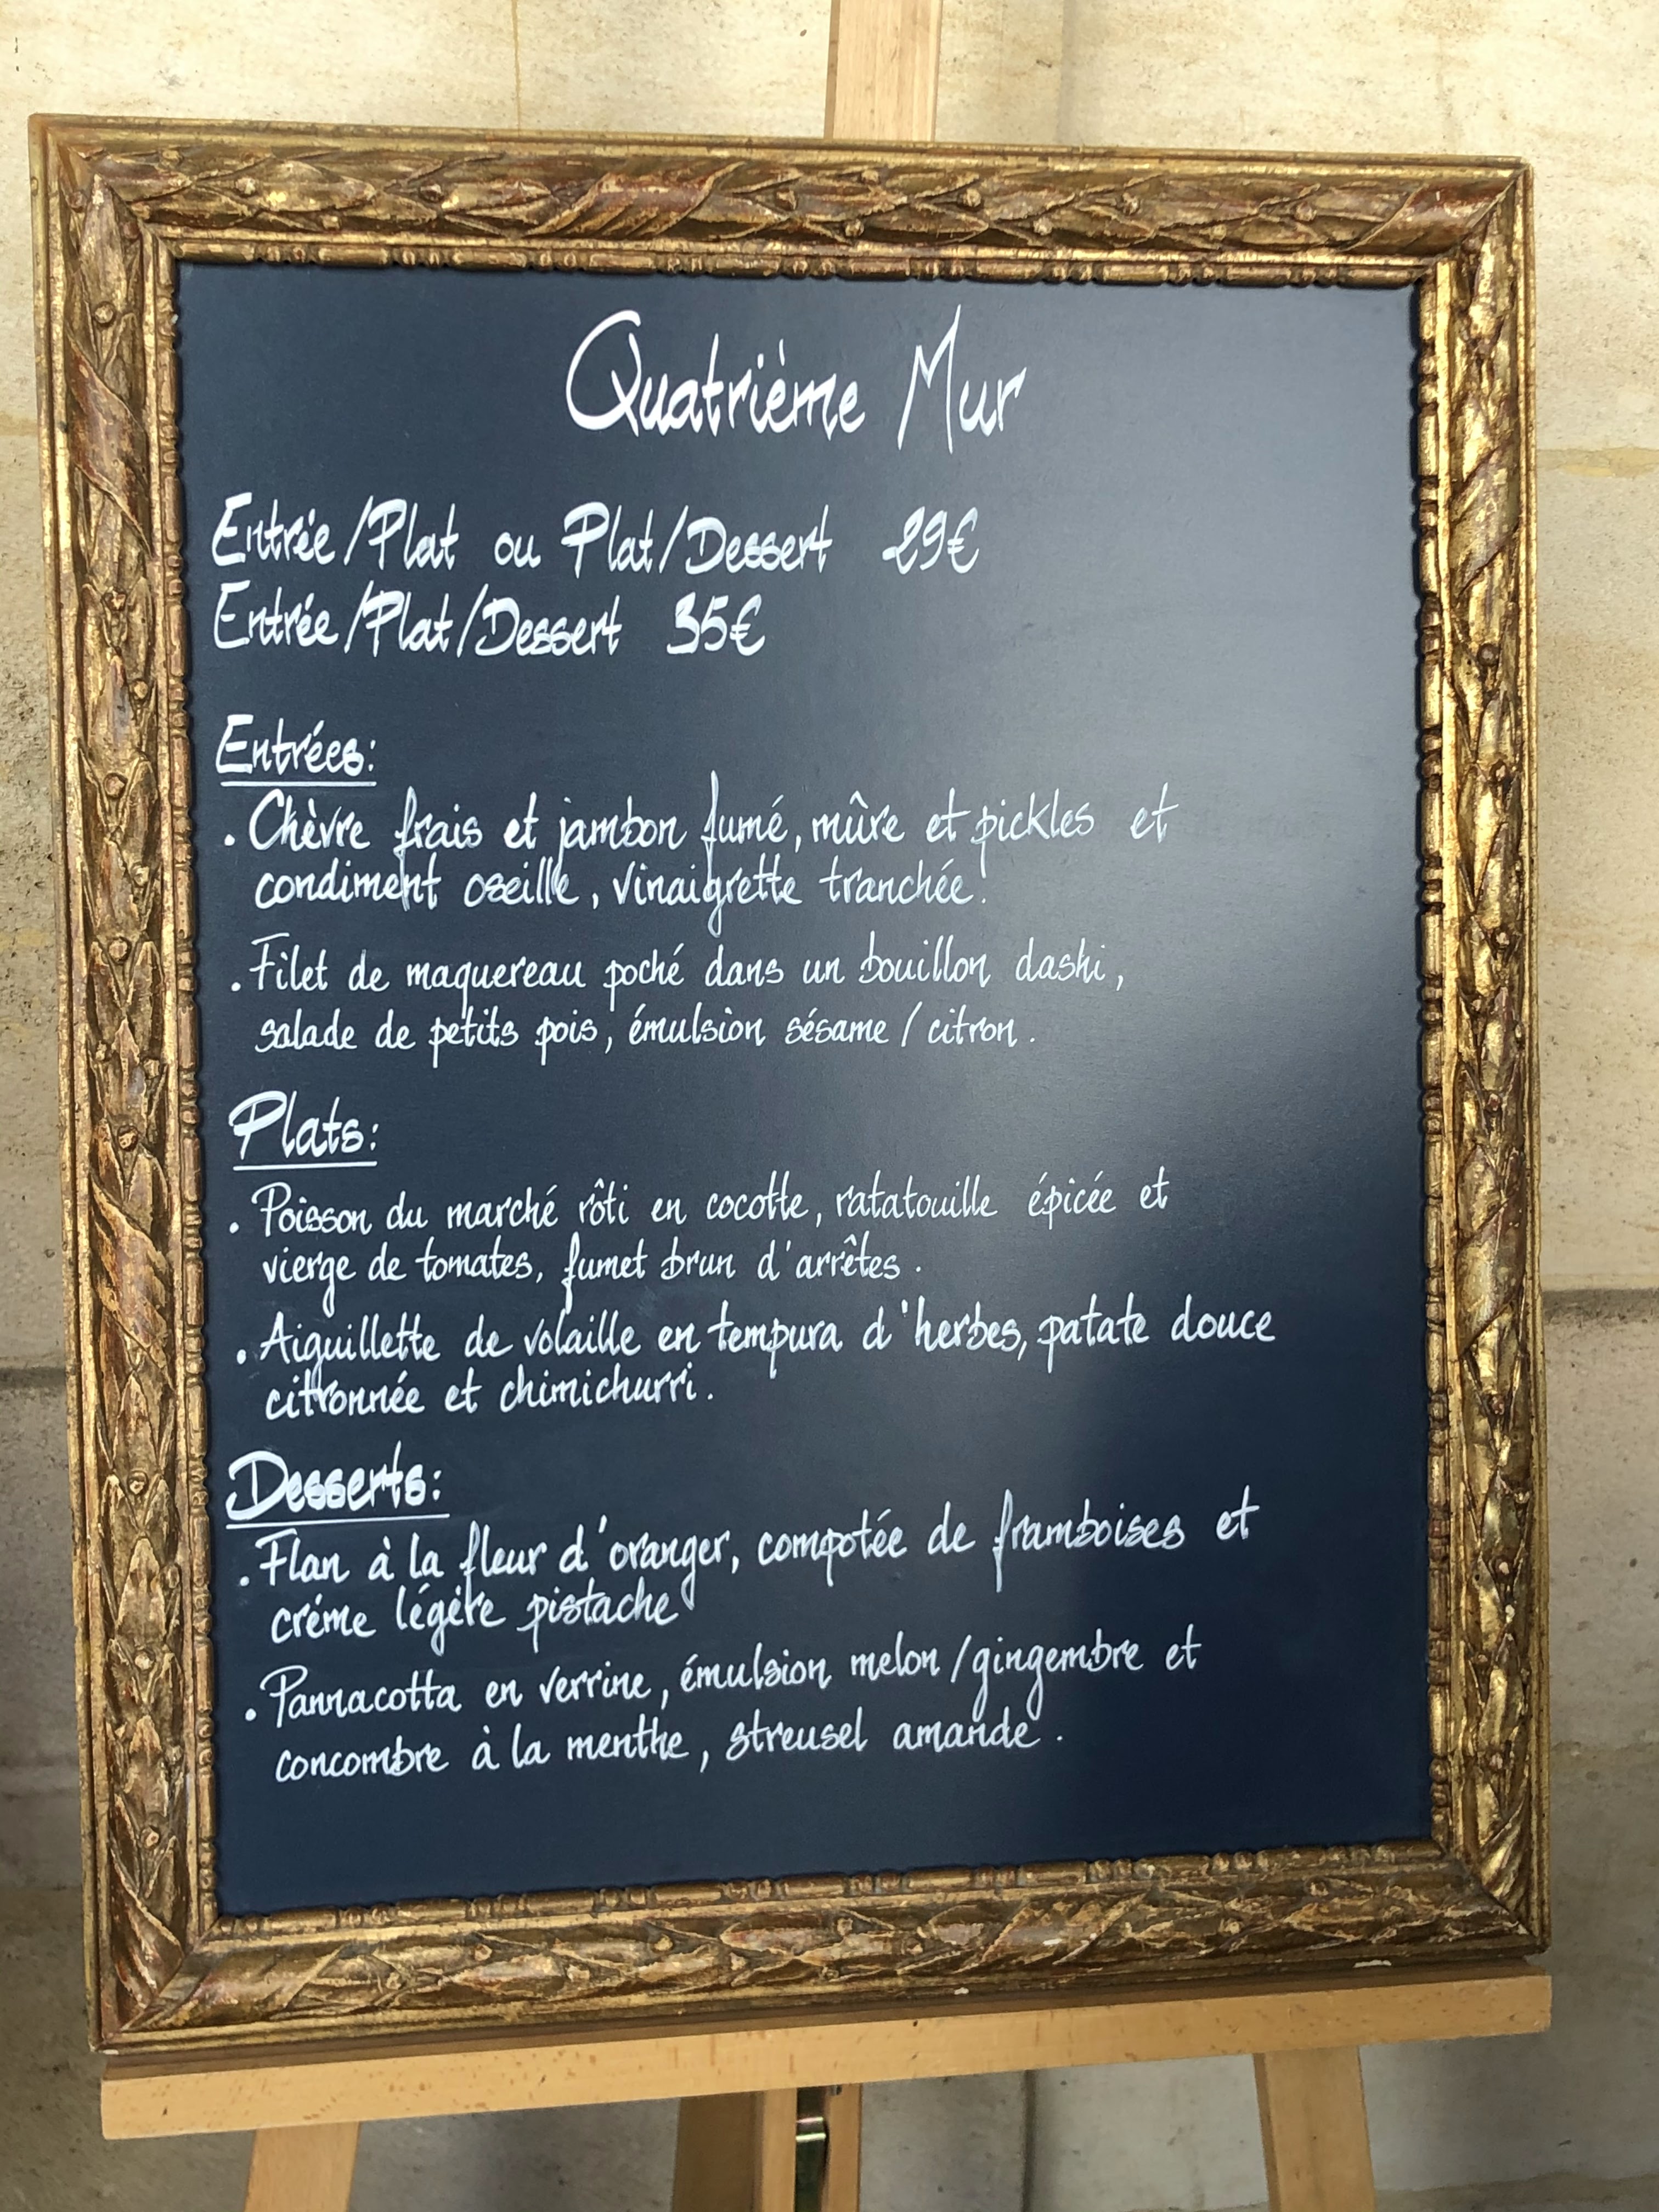 Quatrième Mur
Entrée/Plat ou Plat/Dessert 29€
Entrée/Plat/Dessert 35€
Entrées:
. Chèvre frais et jambon fumé, mûre et pickles et
condiment oseille, vinaigrette tranchée.
. Filet de maquereau poché dans un bouillon dashi,
salade de petits pois, émulsion sésame / citron.
Plats:
. Poisson du marché rôti en cocotte, ratatouille épicée et
vierge de tomates, fumet brun d'arrêtes.
. Aiguillette de volaille en tempura d'herbes, patate douce
citronnée et chimichurri.
Desserts:
. Flan à la fleur d'oranger, compotée de framboises et
créme légère pistache
. Pannacotta en verrine, émulsion melon/gingembre et
concombre à la menthe, streusel amande.